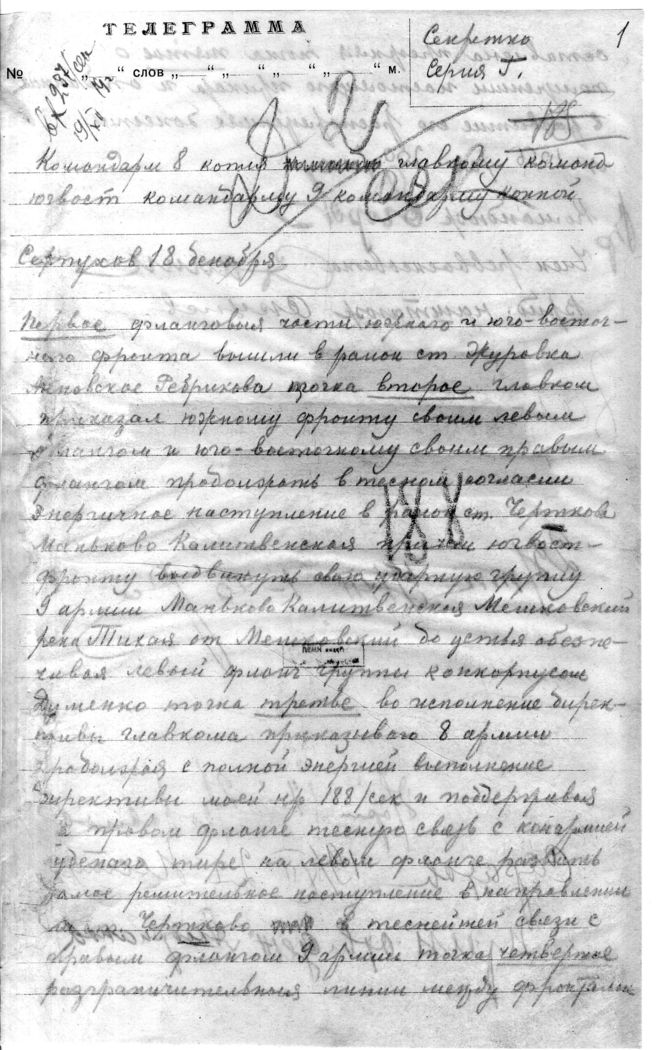 ТЕЛЕГРАММА
Секретно
Серия Г.
1
№ „ “ слов „ “ „ “ „ “ м.
вх 237/сек
19/XII 19 г
Командарм 8 копия главному команд
югвост командарму 9 командарму конной
Серпухов 18 декабря
Первое фланговыя части южного и юго-восточ-
ного фронта вышли в район ст Журовка
Яновское Ребрикова точка второе главком
приказал южному фронту своим левым
флангом и юго-восточному своим правым
флангом продолжать в тесном согласии
энергичное наступление в район ст. Чертково
Маньково Калитвенская причем югвост-
фронту выдвинуть свою ударную группу
9 армии Маньково Калитвенская Мешковский
река Тихая от Мешковский до устья обезпе-
чивая левый фланг группы конкорпусом
Думенко точка третье во исполнение дирек-
тивы главкома приказываю 8 армии
продолжая с полной энергией выполнение
директивы моей нр 188/сек и поддерживая
на правом фланге тесную связь с конармией
буденаго тире на левом фланге развить
самое решительное наступление в направлении
на Чертково в теснейшей связи с
правым флангом 9 армии точка четвертое
разграничительныя линии между фронтами
188